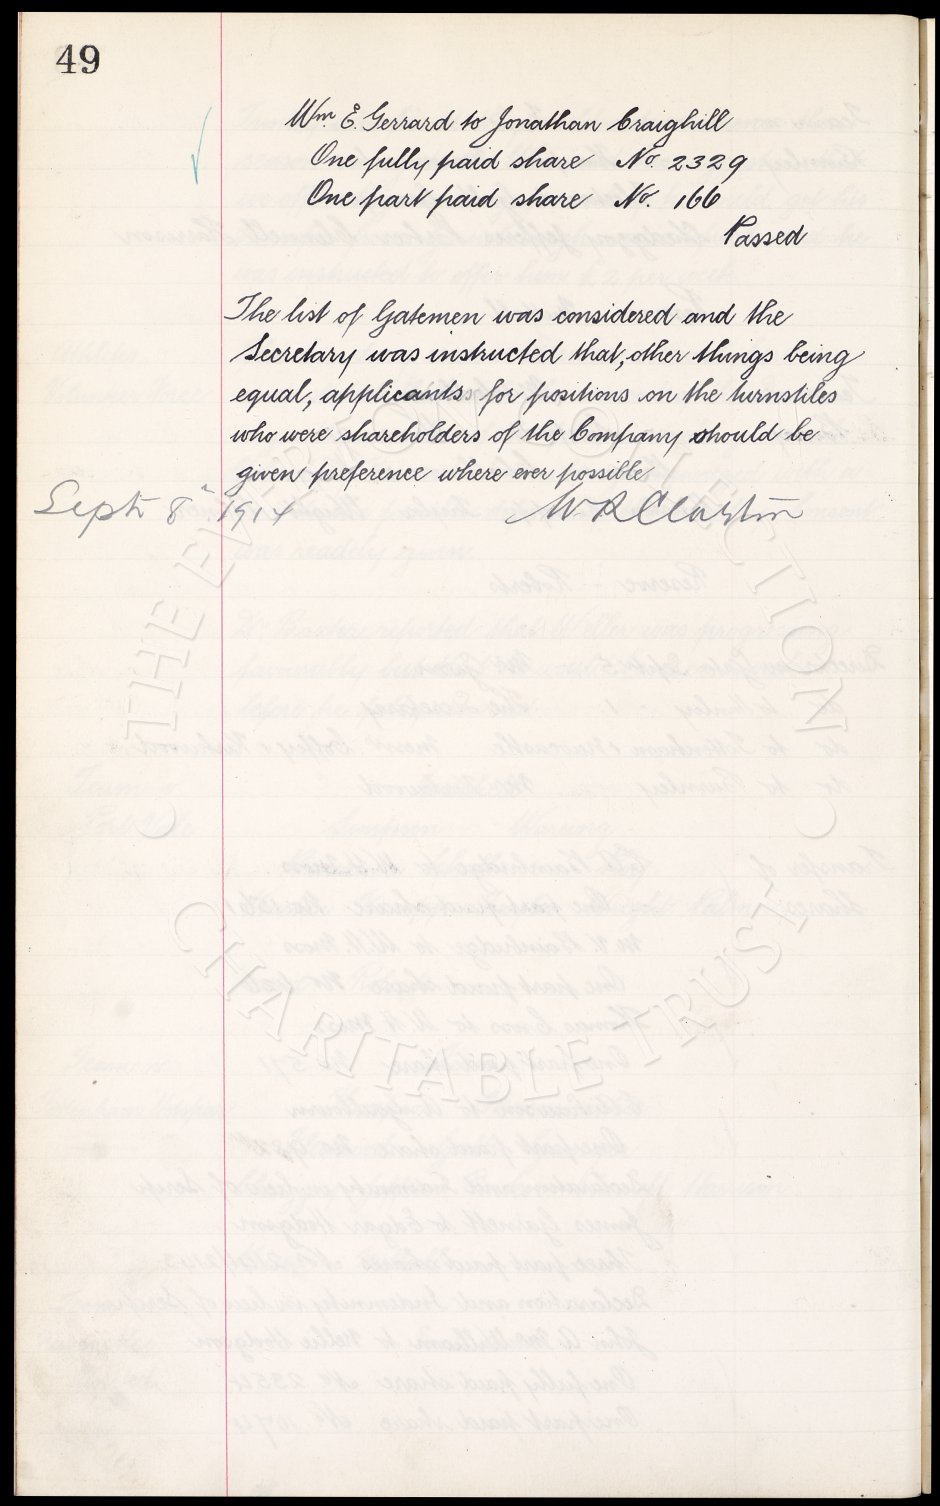 49
Wm E. Gerrard to Jonathan Craighill
One fully paid share No. 2329
One part paid share No. 166
Passed
The list of Gatemen was considered and the
Secretary was instructed that, other things being
equal, applicants for positions on the turnstiles
who were shareholders of the Company should be
given preference where ever possible
Sept 8th 1914 W R Clayton
© THE EVERTON COLLECTION
CHARITABLE TRUST